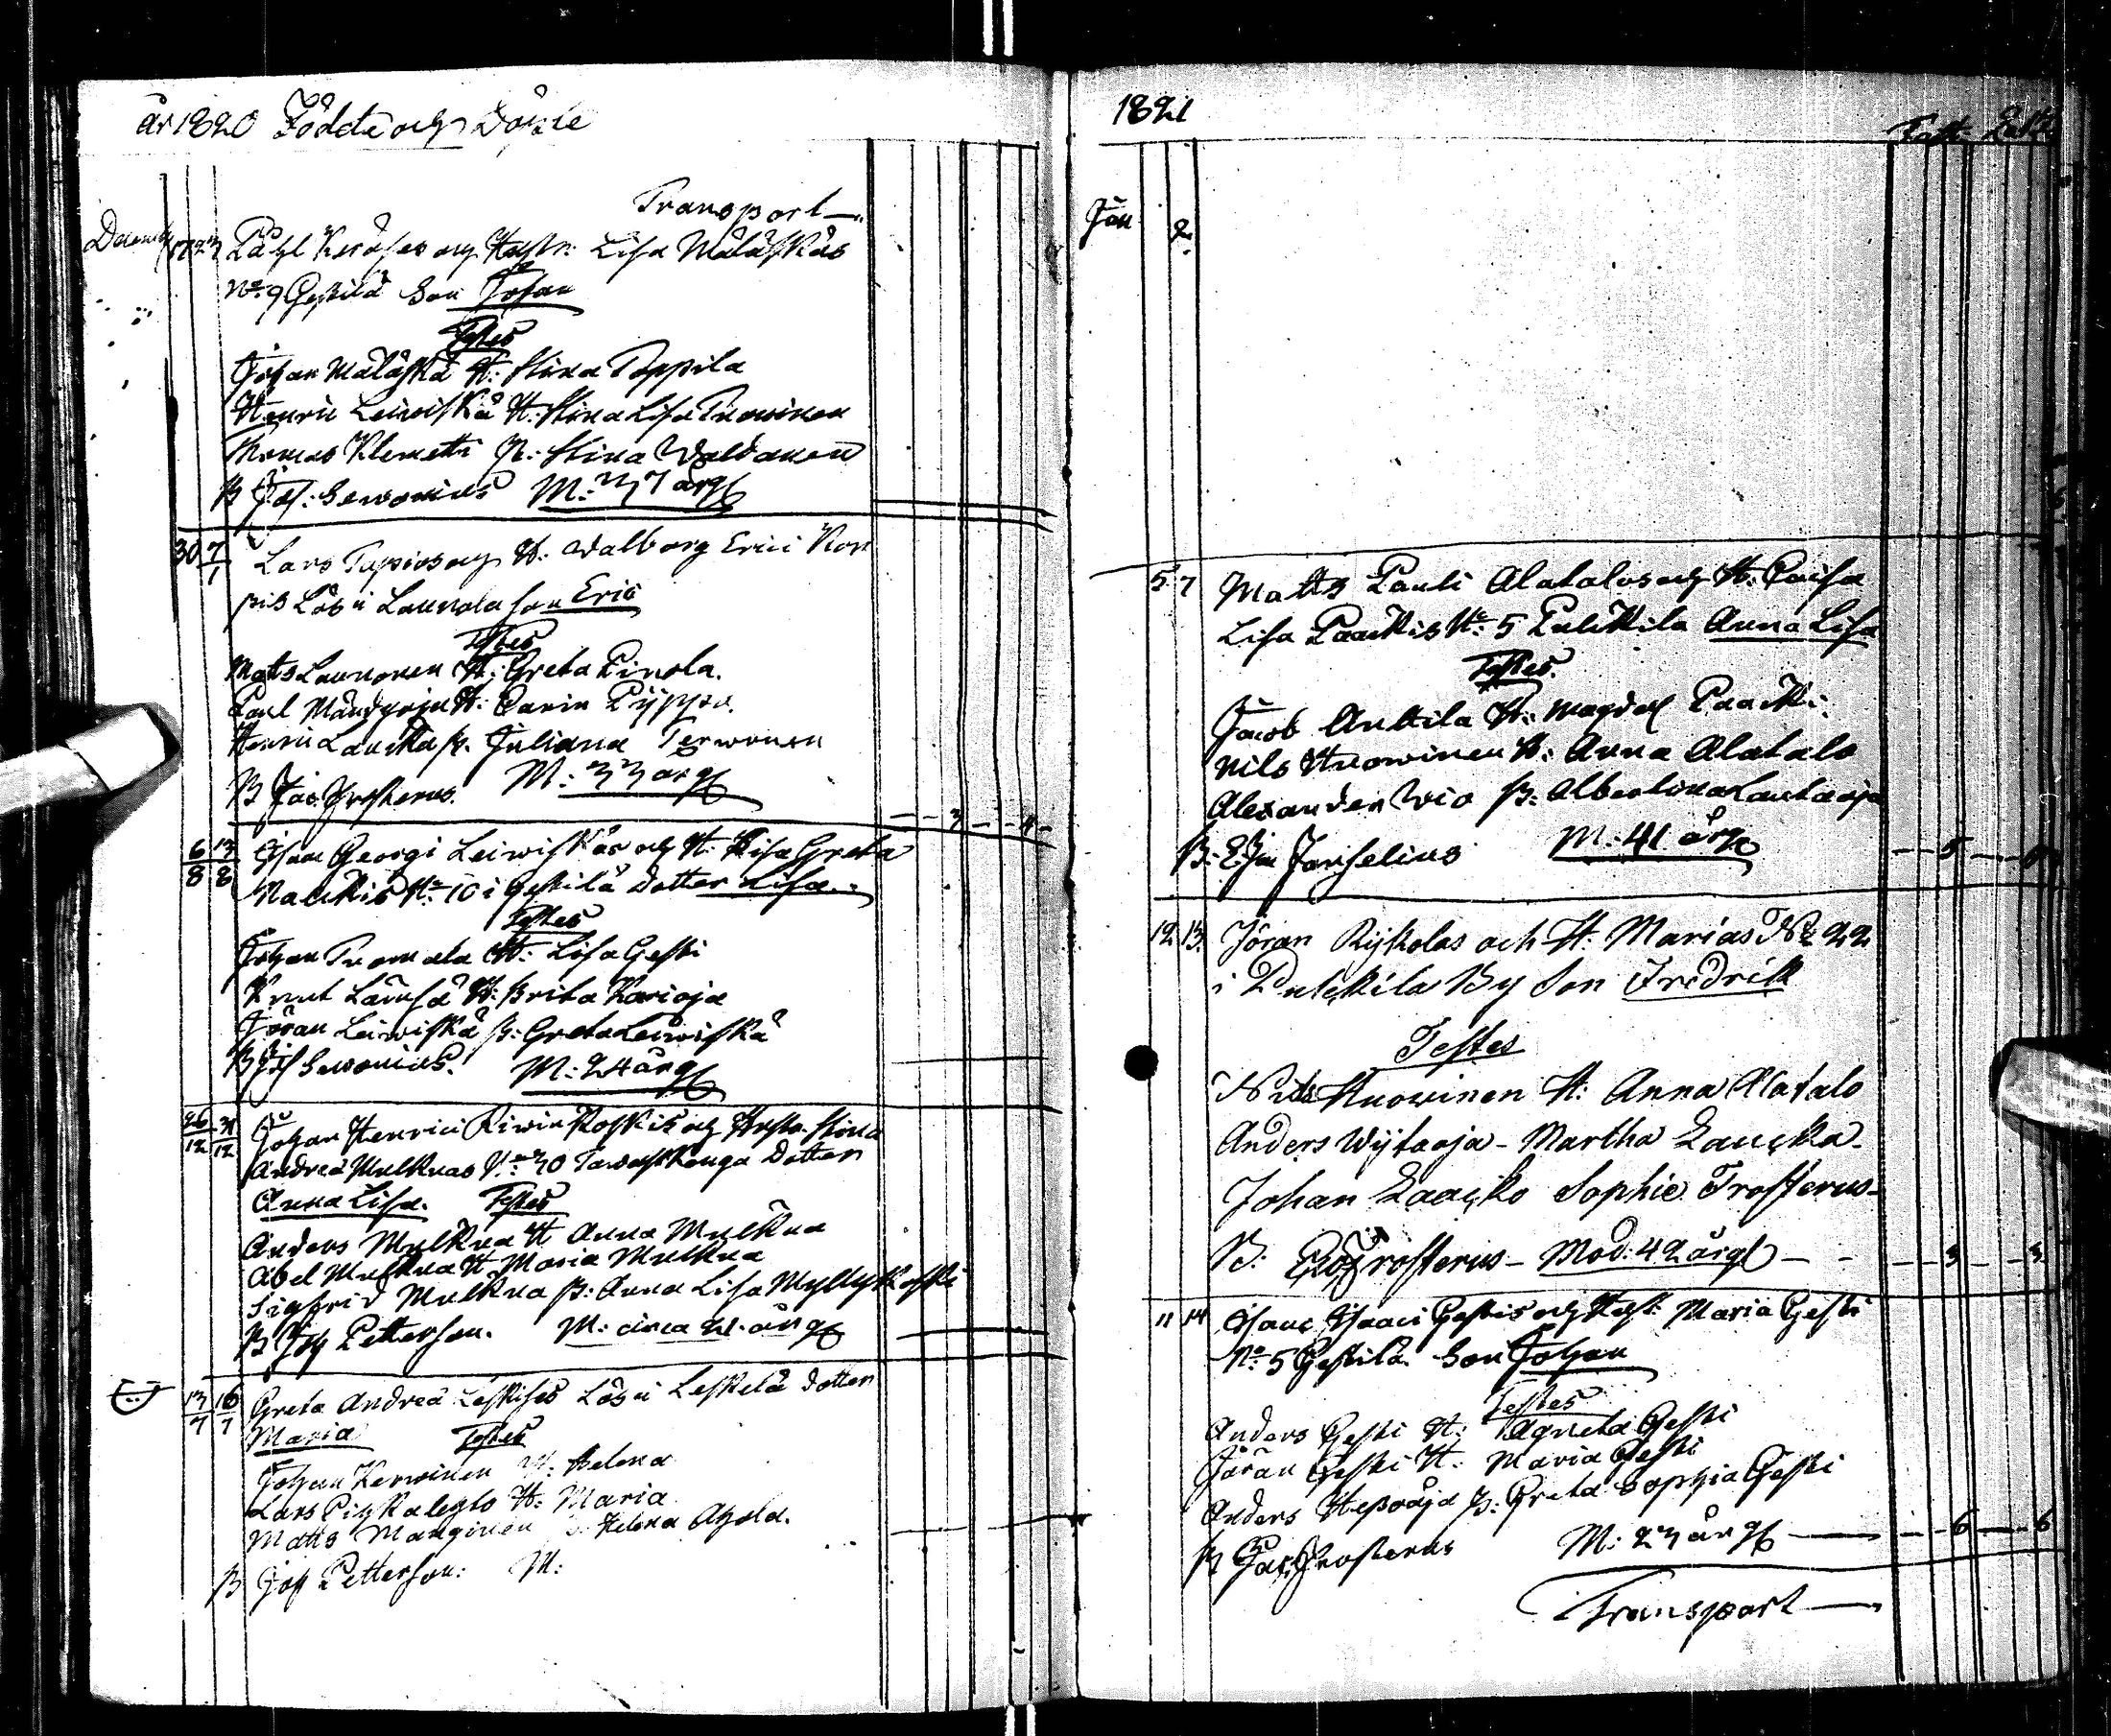 år 1820 Födde och Döpte
Transport
Decemb 17 23 Påhl Keräses och Hustr: Lisa Maläskäs
No: 9 Gestilä Son Johan
Testes
Johan Maläskä H: Stina Toppila
Henric Leiwiskä H: Stina Lisa Tuowinen
Thomas Klemetti P: Stina Waldanen
B Jos: Sawonius M: 37 årg
30 7/1 Lars Tapios och H: Walborg Erici Kor
pis Lös i Launola son Eric
Testes
Matts Launonen H: Greta Pirola.
Paul Mändyoja H: Carin Pyppo.
Henric Laucka p. Juliana Terwonen
B Jac. Frosterus. M: 33 årg
3 4
6/8 13/8 Isaac Georgi Leiwiskäs och H: Lisa Greta
Naukis No: 10 i Gestilä Dotter Lisa.
Testes
Johan Tuomala H: Lisa Gesti
Knut Länsä H: Brita Karioja
Jöran Leiwiskä p: Greta Leiwiskä
B Jos Sawonius. M: 24 årg
26/12 31/12 Johan Henrici Kiwinkoskis och Hustr. Stina
Andreä Mulkuas No: 30 Dotter
Anna Lisa. Testes
Anders Mulkua H Anna Mulkua
Abel Mulkua H Maria Mulkua
Sigfrid Mulkua p: Anna Lisa Myllykoski
B Jos Petterson. M: circa 21 årg
13/7 16/7 Greta Andreä Leskises Lös i Leskelä dotter
Maria Testes
Johan Kerwinen H: Helena
Lars Pihkalehto H: Maria
Matts Manginen p: Helena Ahola.
B Jos Petterson: M:
1821
Jan 2
5 7 Matts Pauli Alatalos och H: Caisa
Lisa Paackis No: 5 Pulckila Anna Lisa
Testes.
Jacob Anttila H: Magdal Paacki
Nils Huowinen H: Anna Alatalo
Alexander Wio p: Albertina Lautaoja
B: E. Joh Janselius M: 41 årg
5 5
12 13. Jöran Rykolas och H: Marias No 22
i Pulckila By Son Fredrik
Testes
Nils Huowinen H: Anna Alatalo
Anders Wijtaoja - Martha Laucka -
Johan Laacko Sophie Frosterus -
B: Frosterus - Mod: 42 årg -
3 3
11 14 Isaac Isaaci Gestis och Hust: Maria Gesti
No: 5 Gestilä. Son Johan
Testes
Anders Gesti H: Agneta Gesti
Jöran Gesti H: Maria Gesti
Anders Hepooja p: Greta Sophia Gesti
B Jac. Frosterus M: 23 årg
6 6
Transport